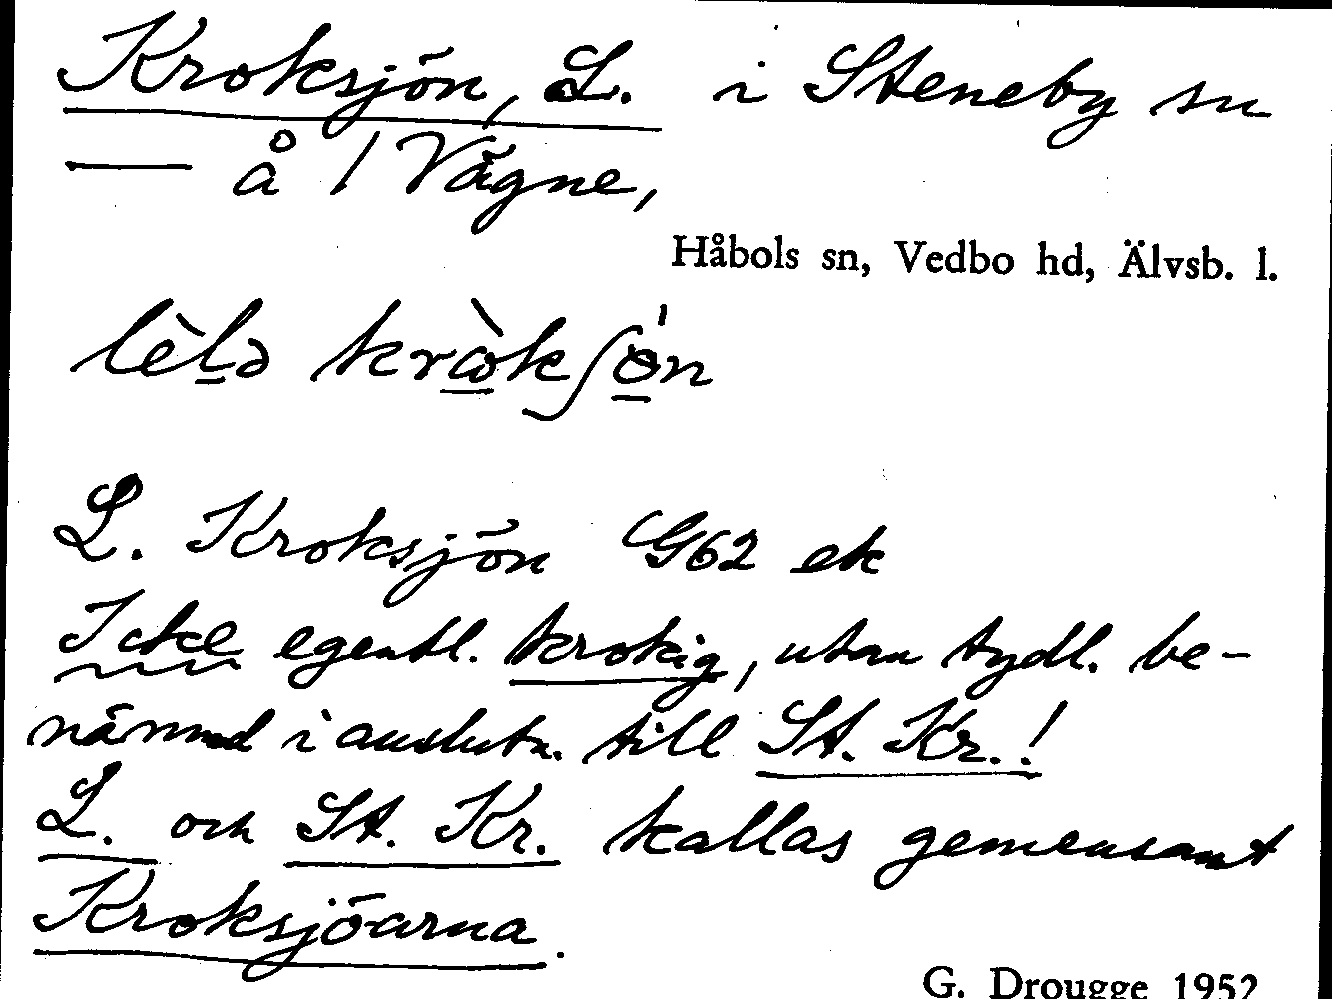 Kroksjön, L. i Steneby sn
— å 1 Vägne,
Håbols sn, Vedbo hd, Älvsb. l.
L. Kroksjön G62 ek
Icke egentl. krokig, utan tydl. be-
nämnd i anslutn. till St. Kr.!
L. och St. Kr. kallas gemensamt
Kroksjöarna.
G. Drougge 1952